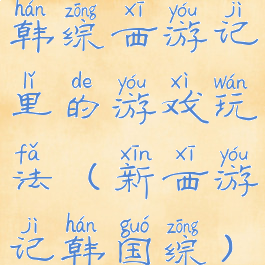 hán zōng xī yóu jì
韩综西游记
lǐ de yóu xì wán
里的游戏玩
fǎ xīn xī yóu
法（新西游
jì hán guó zōng
记韩国综）